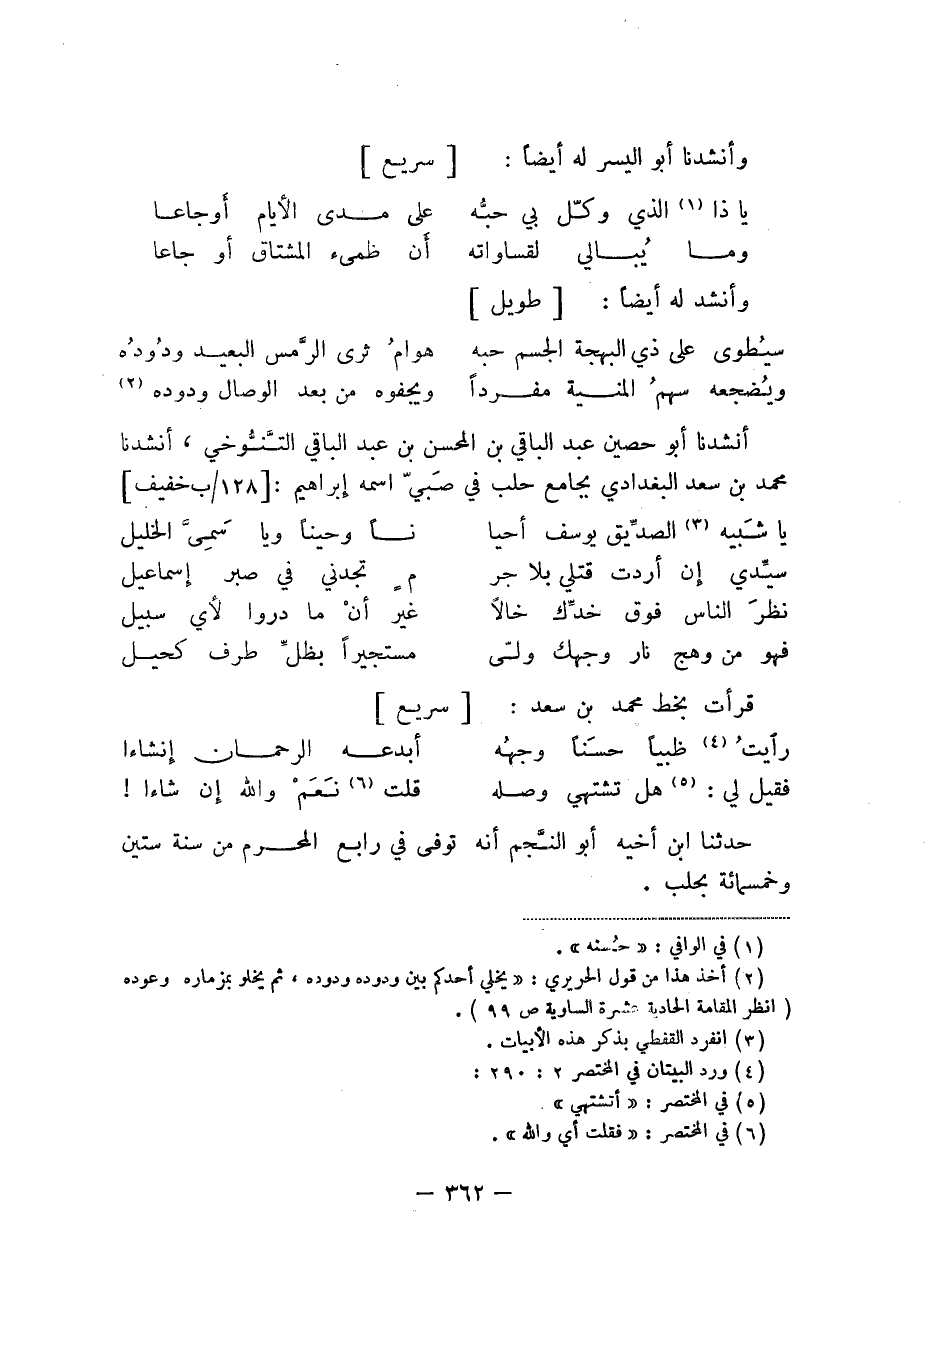 وأنشدنا أبو اليسر له أيضاً : [ سريع ]
يا ذا (١) الذي وكّل بي حبُّه على مـدى الأيام أَوجاعـا
ومـا يُبـالي لقساواته أَن ظمىء المشتاق أو جاعا
وأنشد له أيضاً : [ طويل ]
سيُطوى على ذي البهجة الجسم حبه هوامُ ثرى الرَّمس البعيـد ودُودُه
ويُضجعه سهمُ المنـية مفـرداً ويجفوه من بعد الوصال ودوده (٢)
أنشدنا أبو حصين عبد الباقي بن المحسن بن عبد الباقي التَّنُوخي ، أنشدنا
محمد بن سعد البغدادي بجامع حلب في صَبيّ اسمه إبراهيم : [١٢٨/ب خفيف]
يا شَبيه (٣) الصدِّيق يوسف أحيا نـاً وحيناً ويا سَمِيَّ الخليل
سيِّدي إن أردت قتلي بلا جر مٍ تجدني في صبر إسماعيل
نظرَ الناس فوق خدِّك خالاً غير أنْ ما دروا لأي سبيل
فهو من وهج نار وجهك ولّى مستجيراً بظلِّ طرف كحيـل
قرأت بخط محمد بن سعد : [ سريع ]
رأيتُ (٤) ظبياً حسَناً وجهُه أبدعـه الرحمـان إنشاءا
فقيل لي : (٥) هل تشتهي وصله قلت (٦) نَعَمْ والله إن شاءا !
حدثنا ابن أخيه أبو النَّجم أنه توفى في رابع المحـرم من سنة ستين
وخمسمائة بحلب .
(١) في الوافي : « حُسنه » .
(٢) أخذ هذا من قول الحريري : « يخلي أحدكم بين ودوده ودوده ، ثم يخلو بمزماره وعوده
( انظر المقامة الحادية عشرة الساوية ص ٩٩ ) .
(٣) انفرد القفطي بذكر هذه الأبيات .
(٤) ورد البيتان في المختصر ٢ : ٢٩٠ :
(٥) في المختصر : « أتشتهي » .
(٦) في المختصر : « فقلت أي والله » .
— ٣٦٢ —